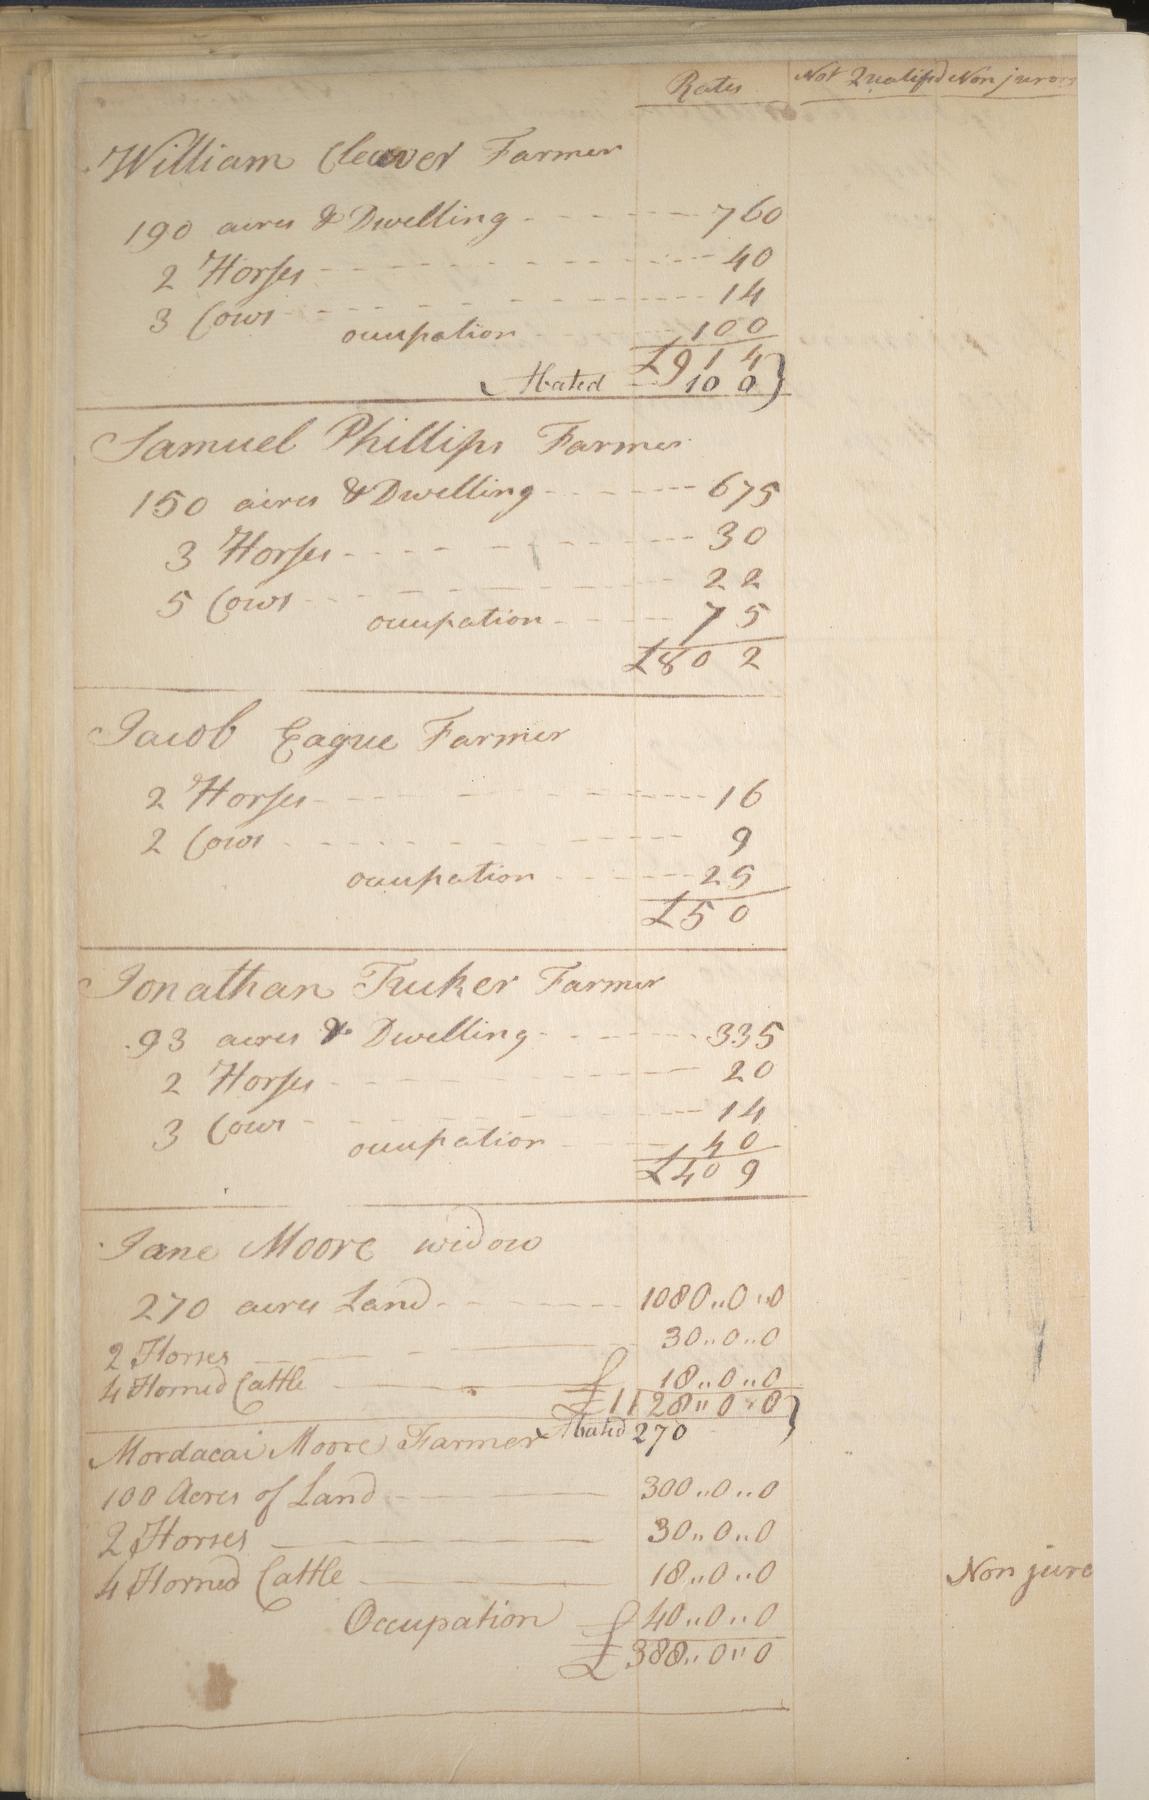 Rates Not Qualifd Non jurors
William Cleaver Farmer
190 acres & Dwelling 760
2 Horses 40
3 Cows 14
occupation 100
£914
Abated 100
Samuel Phillips Farmer
150 acres & Dwelling 675
3 Horses 30
5 Cows 22
occupation 75
£802
Jacob Eague Farmer
2 Horses 16
2 Cows 9
occupation 25
£50
Jonathan Tucker Farmer
93 acres & Dwelling 335
2 Horses 20
3 Cows 14
occupation 40
£409
Jane Moore widow
270 acres Land 1080,,0,,0
2 Horses 30,,0,,0
4 Horned Cattle 18,,0,,0
£1128,,0,,0
Abated 270
Mordacai Moore Farmer
100 Acres of Land 300,,0,,0
2 Horses 30,,0,,0
4 Horned Cattle 18,,0,,0 Non juro
Occupation 40,,0,,0
£388,,0,,0